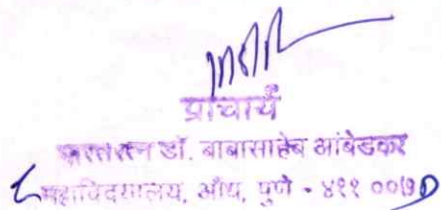 प्राचार्य
भारतरत्न डॉ. बाबासाहेब आंबेडकर
महाविदयालय, औंध, पुणे - ४११ ००७